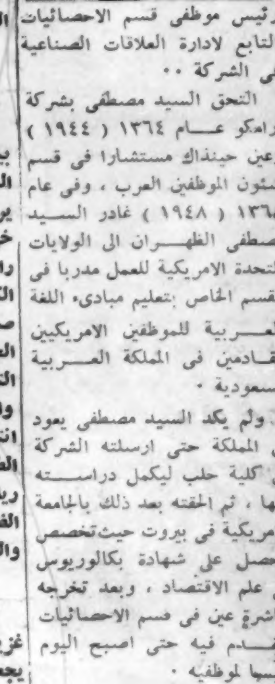 رئيس موظفى قسم الاحصائيات
التابع لادارة العلاقات الصناعية
فى الشركة ٠٠
التحق السيد مصطفى بشركة
ارامكو عـــام ١٣٦٤ ( ١٩٤٤ )
وعين حينذاك مستشارا فى قسم
شئون الموظفين العرب ، وفى عام
( ١٩٤٨ ) غادر الســـيد
مصطفى الظهـــران الى الولايات
المتحدة الامريكية للعمل مدربا فى
القسم الخاص بتعليم مبادىء اللغة
العـــربية للموظفين الامريكيين
القـــادمين فى المملكة العـــربية
السعودية ٠
ولم يكد السيد مصطفى يعود
الى المملكة حتى ارسلته الشركة
الى كلية حلب ليكمل دراســـته
بها ، ثم الحقته بعد ذلك بالجامعة
الامريكية فى بيروت حيث تخصص
وحصل على شهادة بكالوريوس
فى علم الاقتصاد ، وبعد تخرجه
مباشرة عين فى قسم الاحصائيات
فيه حتى اصبح اليوم
رئيسا لموظفيه ٠